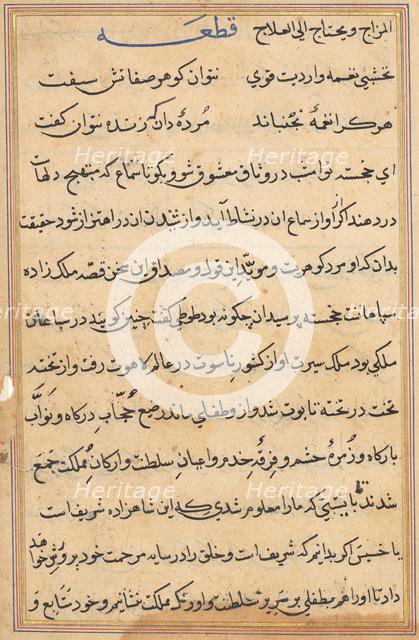 المزاج و یحتاج الی العلاج قطعه
نخشبی نغمه واردیت قوی نتوان کوهر صفاتش سفت
هر کرا نغمهٔ نجنباند مرده دان کش زنده نتوان کفت
ای خجسته تو امشب در وثاق معشوق شو و بکو تا سماع که مبهج دلهاست
در دهند اکر او از سماع ان در نشاط آید و از شنیدن ان در اهتزاز شود حقیقت
بدان که او مرد کوهریت و موید این قول و مصداق این سخن قصه ملک زاده
سپاهانست خجسته پرسید ان چکونه بود طوطی کفت چنین کویند در سپاهان
ملکی بود ملک سیرت او از کشور ناسوت در عالم لاهوت رفت و از تخته
تخت در تخته تابوت شد و از و طفلی ماند رضیع حجاب درکاه و نواب
بارکاه و زمرهٔ حشم و فرقهٔ خدم و اعیان سلطنت و ارکان مملکت جمع
شدند تا بیستی که ما را معلوم شدی که این شاهزاده شریف است
یا خسیس اکر بدانیم که شریف است و خلق را در سایه مرحمت خود پرورش خواهد
داد تا او را هم بطفلی بر سریر سلطنت و اورنک مملکت بنشانیم و خود متابع و
Heritage
Heritage
Heritage
Heritage
Heritage
Heritage
Heritage